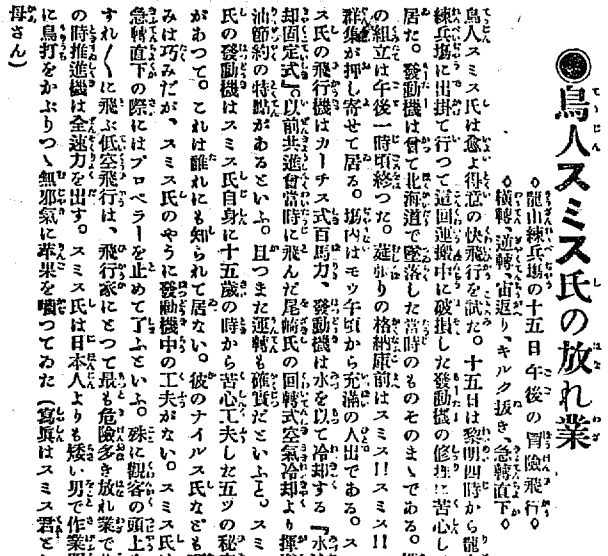 鳥人スミス氏の放れ業
◇龍山練兵塲の十五日午後の冒險飛行◇
◇橫轉、逆轉、宙返り、キルク拔き、急轉直下◇
鳥人スミス氏は愈よ得意の快飛行を試た。十五日は黎明四時から龍
練兵塲に出掛て行つて這回運搬中に破損した發動機の修理に苦心し
居た。發動機は曾て北海道で墜落した當時のものそのまゝである。
の組立は午後一時頃終つた。莚張りの格納庫前はスミス!!スミス!!
群集が押し寄せて居る。塲内はモウ午頃から充滿の人出である。ス
ス氏の飛行機はカーチス式百馬力、發動機は水を以て冷却する『水
却固定式』。以前共進會當時に飛んだ尾崎氏の回轉式空氣冷却より揮
油節約の特點があるといふ。且つまた運轉も確實だといふと。スミ
氏の發動機はスミス氏自身に十五歲の時から苦心工夫した五ツの秘
があつて。これは誰れにも知られて居ない。彼のナイルス氏なども
みは巧みだが、スミス氏のやうに發動機中の工夫がない。スミス氏
急轉直下の際にはプロペラーを止めて了ふといふ。殊に觀客の頭上
すれ〳〵に飛ぶ低空飛行は、飛行家にとつて最も危險多き放れ業で
の時推進機は全速力を出す。スミス氏は日本人よりも矮い男で作業
に鳥打をかぶりつゝ無邪氣に苹果を嚙つてゐた(寫眞はスミス君と
母さん)